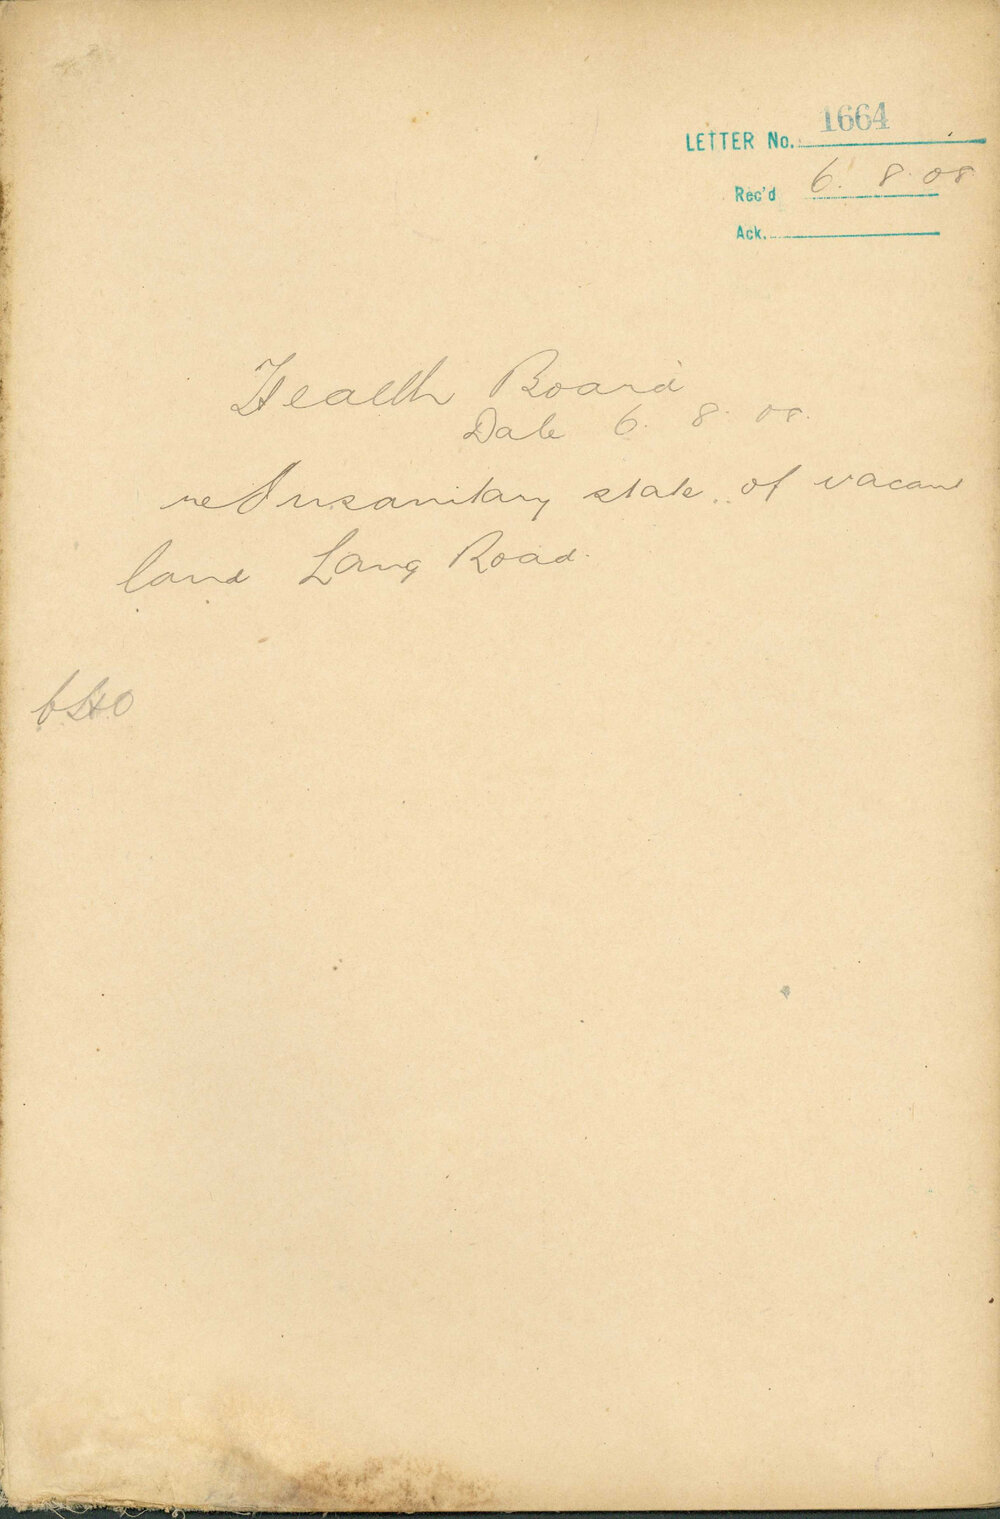 LETTER No. 1664
Rec'd 6. 8. 08
Ack.
Health Board
Date 6. 8. 08.
re Insanitary state of vacant
land Lang Road.